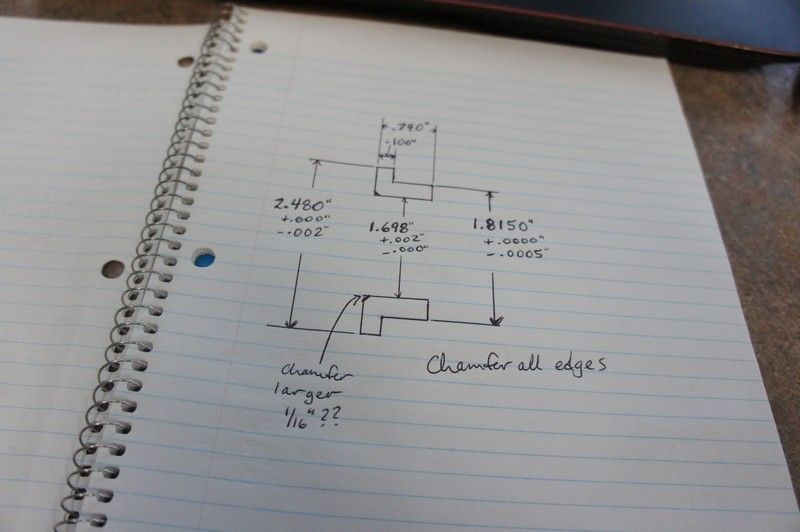 .790"
.100"
2.480"
+.000"
-.002"
1.698"
+.002"
-.000"
1.8150"
+.0000"
-.0005"
chamfer
larger
1/16" ??
Chamfer all edges